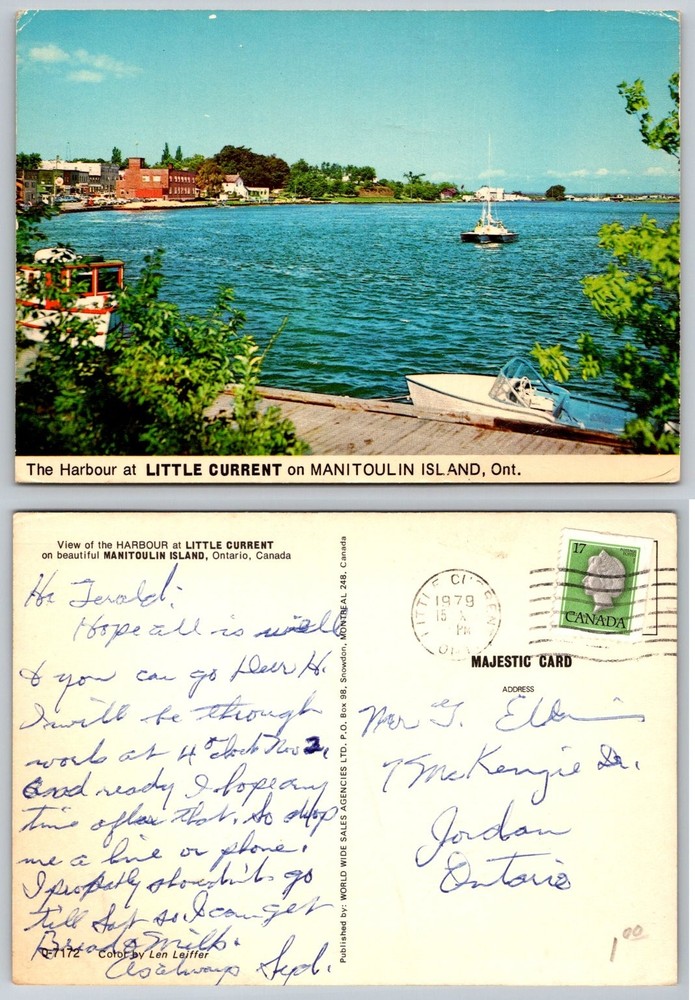 The Harbour at LITTLE CURRENT on MANITOULIN ISLAND, Ont.
View of the HARBOUR at LITTLE CURRENT
on beautiful MANITOULIN ISLAND, Ontario, Canada
Hi Gerald:
Hope all is well
& you can go Deer H.
I will be through
work at 4 o'clock Nov 2,
and ready I hope any
time after that. So drop
me a line or phone.
I probably shouldn't go
till Sat so I can get
Bread & Milk.
As always
Q-7172 Color by Len Leiffer
Published by: WORLD WIDE SALES AGENCIES LTD. P.O. Box 98, Snowdon, MONTREAL 248, Canada
LITTLE
1979
15 X
PM
17
CANADA
MAJESTIC CARD
ADDRESS
Mr G.
7 McKenzie Dr.
Jordan
Ontario
1 00